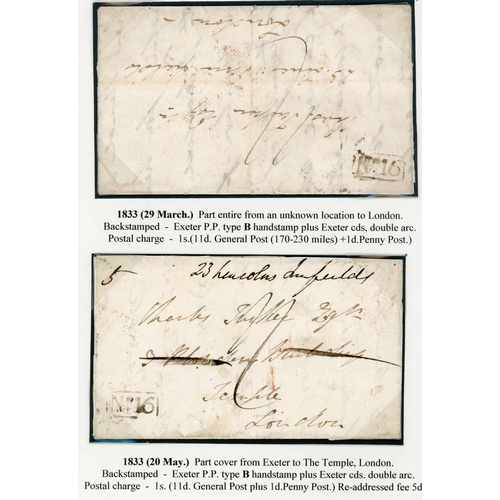 London
Nº 16
1833 (29 March.) Part entire from an unknown location to London.
Backstamped - Exeter P.P. type B handstamp plus Exeter cds, double arc.
Postal charge - 1s.(11d. General Post (170-230 miles) +1d.Penny Post.)
5
23 Lincolns Inn fields
Charles Esqr
Temple
Nº 16
London
1833 (20 May.) Part cover from Exeter to The Temple, London.
Backstamped - Exeter P.P. type B handstamp plus Exeter cds. double arc.
Postal charge - 1s. (11d. General Post plus 1d.Penny Post.) Re-addressed fee 5d